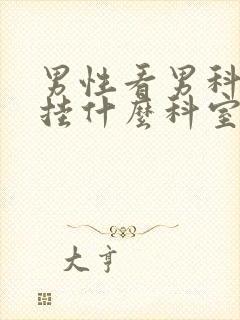 男性看男科
挂什麼科室
大亨